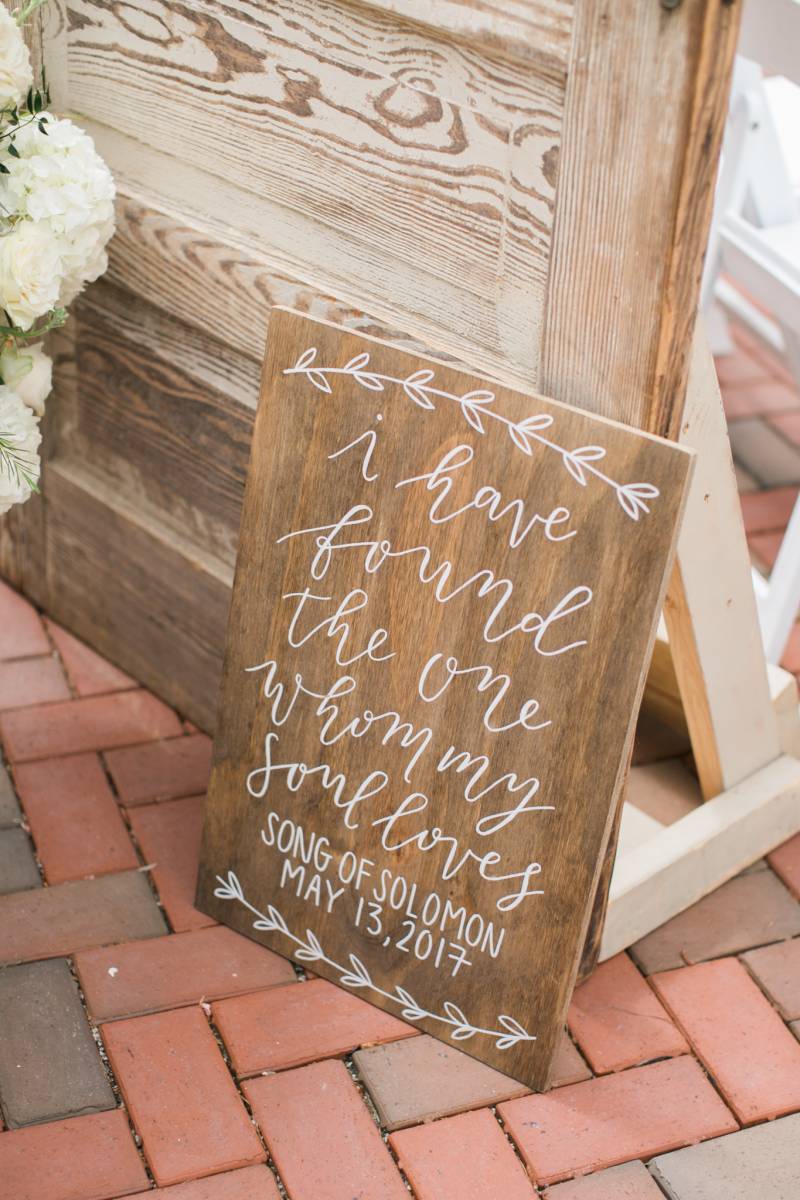 i have
found
the one
whom my
soul loves
SONG OF SOLOMON
MAY 13, 2017